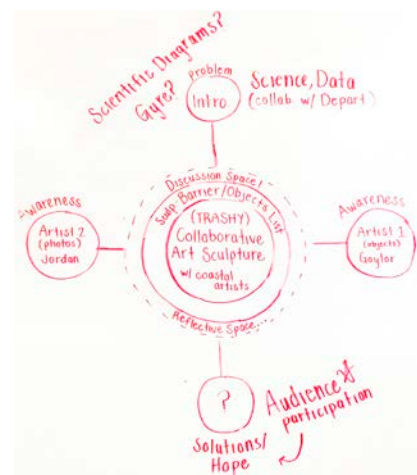 Scientific Diagrams?
Gyre?
Problem
Intro
Science, Data
(collab. w/ Depart.)
Discussion Space!
Sculp. Barrier/Objects List
(TRASHY)
Collaborative
Art Sculpture
w/ coastal
artists
Reflective Space...
Awareness
Artist 2
(photos)
Jordan
Awareness
Artist 1
(objects)
Gaylor
?
Solutions/
Hope
Audience
participation